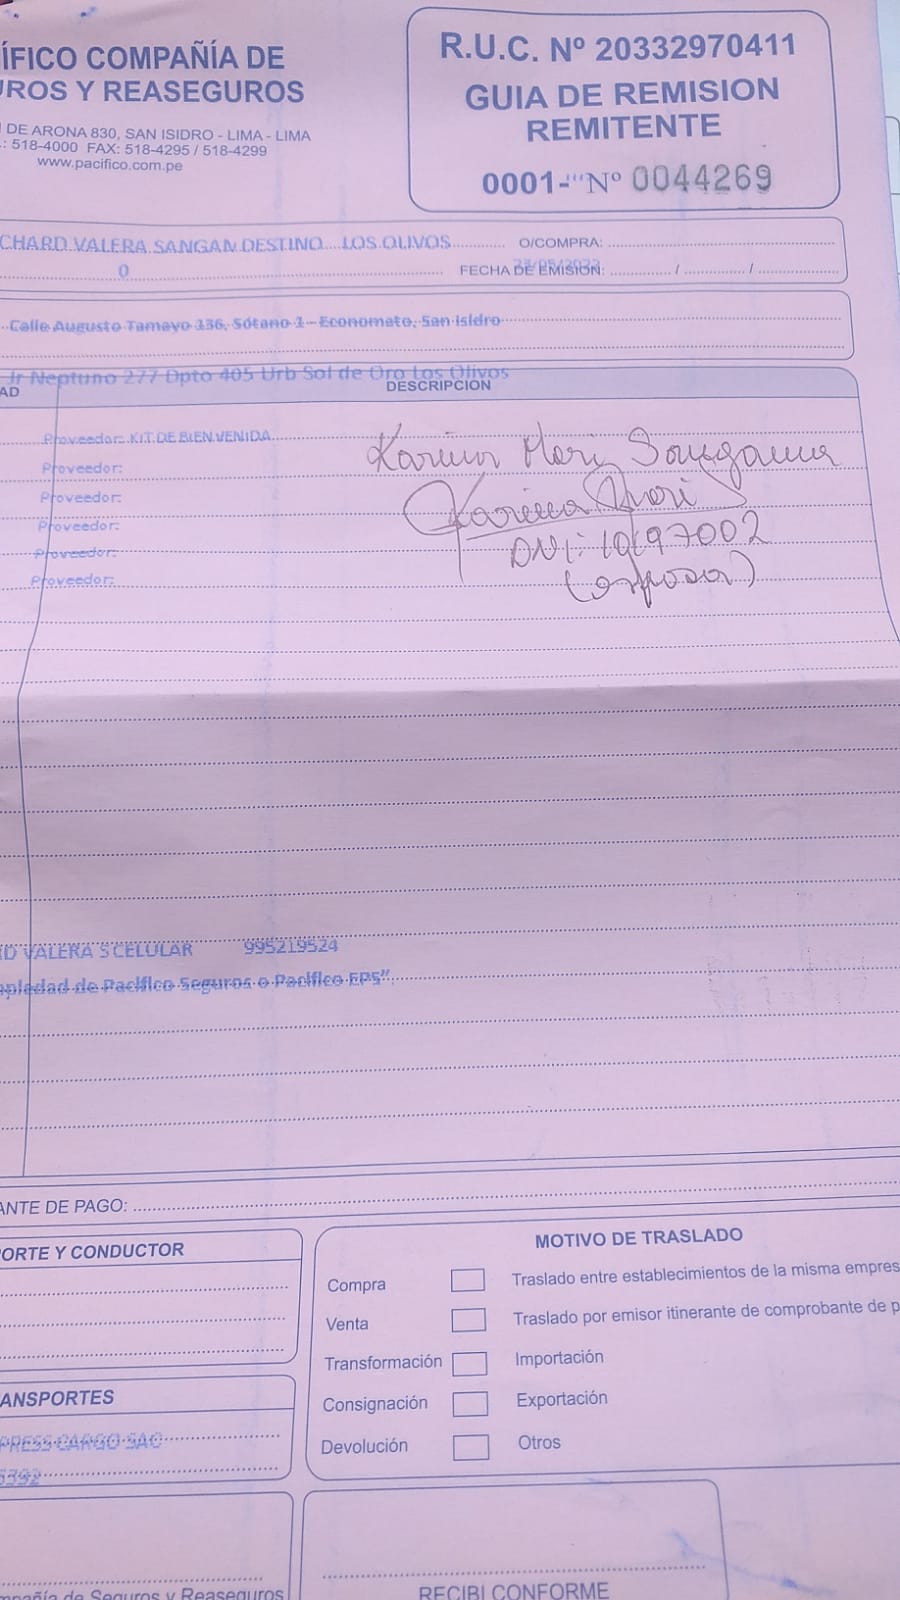 ÍFICO COMPAÑÍA DE
UROS Y REASEGUROS
DE ARONA 830, SAN ISIDRO - LIMA - LIMA
.: 518-4000 FAX: 518-4295 / 518-4299
www.pacifico.com.pe
R.U.C. Nº 20332970411
GUIA DE REMISION
REMITENTE
0001- Nº 0044269
CHARD VALERA SANGAN DESTINO LOS OLIVOS O/COMPRA:
0 FECHA DE EMISIÓN: / /
Calle Augusto Tamayo 136, Sótano 1 - Economato, San Isidro
Jr Neptuno 277 Dpto 405 Urb Sol de Oro Los Olivos
AD DESCRIPCION
Proveedor: KIT DE BIENVENIDA
Proveedor:
Proveedor:
Proveedor:
Proveedor:
Proveedor:
Karina Mori
Karina Mori
DNI: 10197002
(esposa)
RD VALERA S CELULAR 995219524
opiedad de Pacífico Seguros o Pacífico EPS"
ANTE DE PAGO:
PORTE Y CONDUCTOR
ANSPORTES
PRESS CARGO SAC
5392
MOTIVO DE TRASLADO
Compra Traslado entre establecimientos de la misma empres
Venta Traslado por emisor itinerante de comprobante de p
Transformación Importación
Consignación Exportación
Devolución Otros
mpañía de Seguros y Reaseguros
RECIBI CONFORME